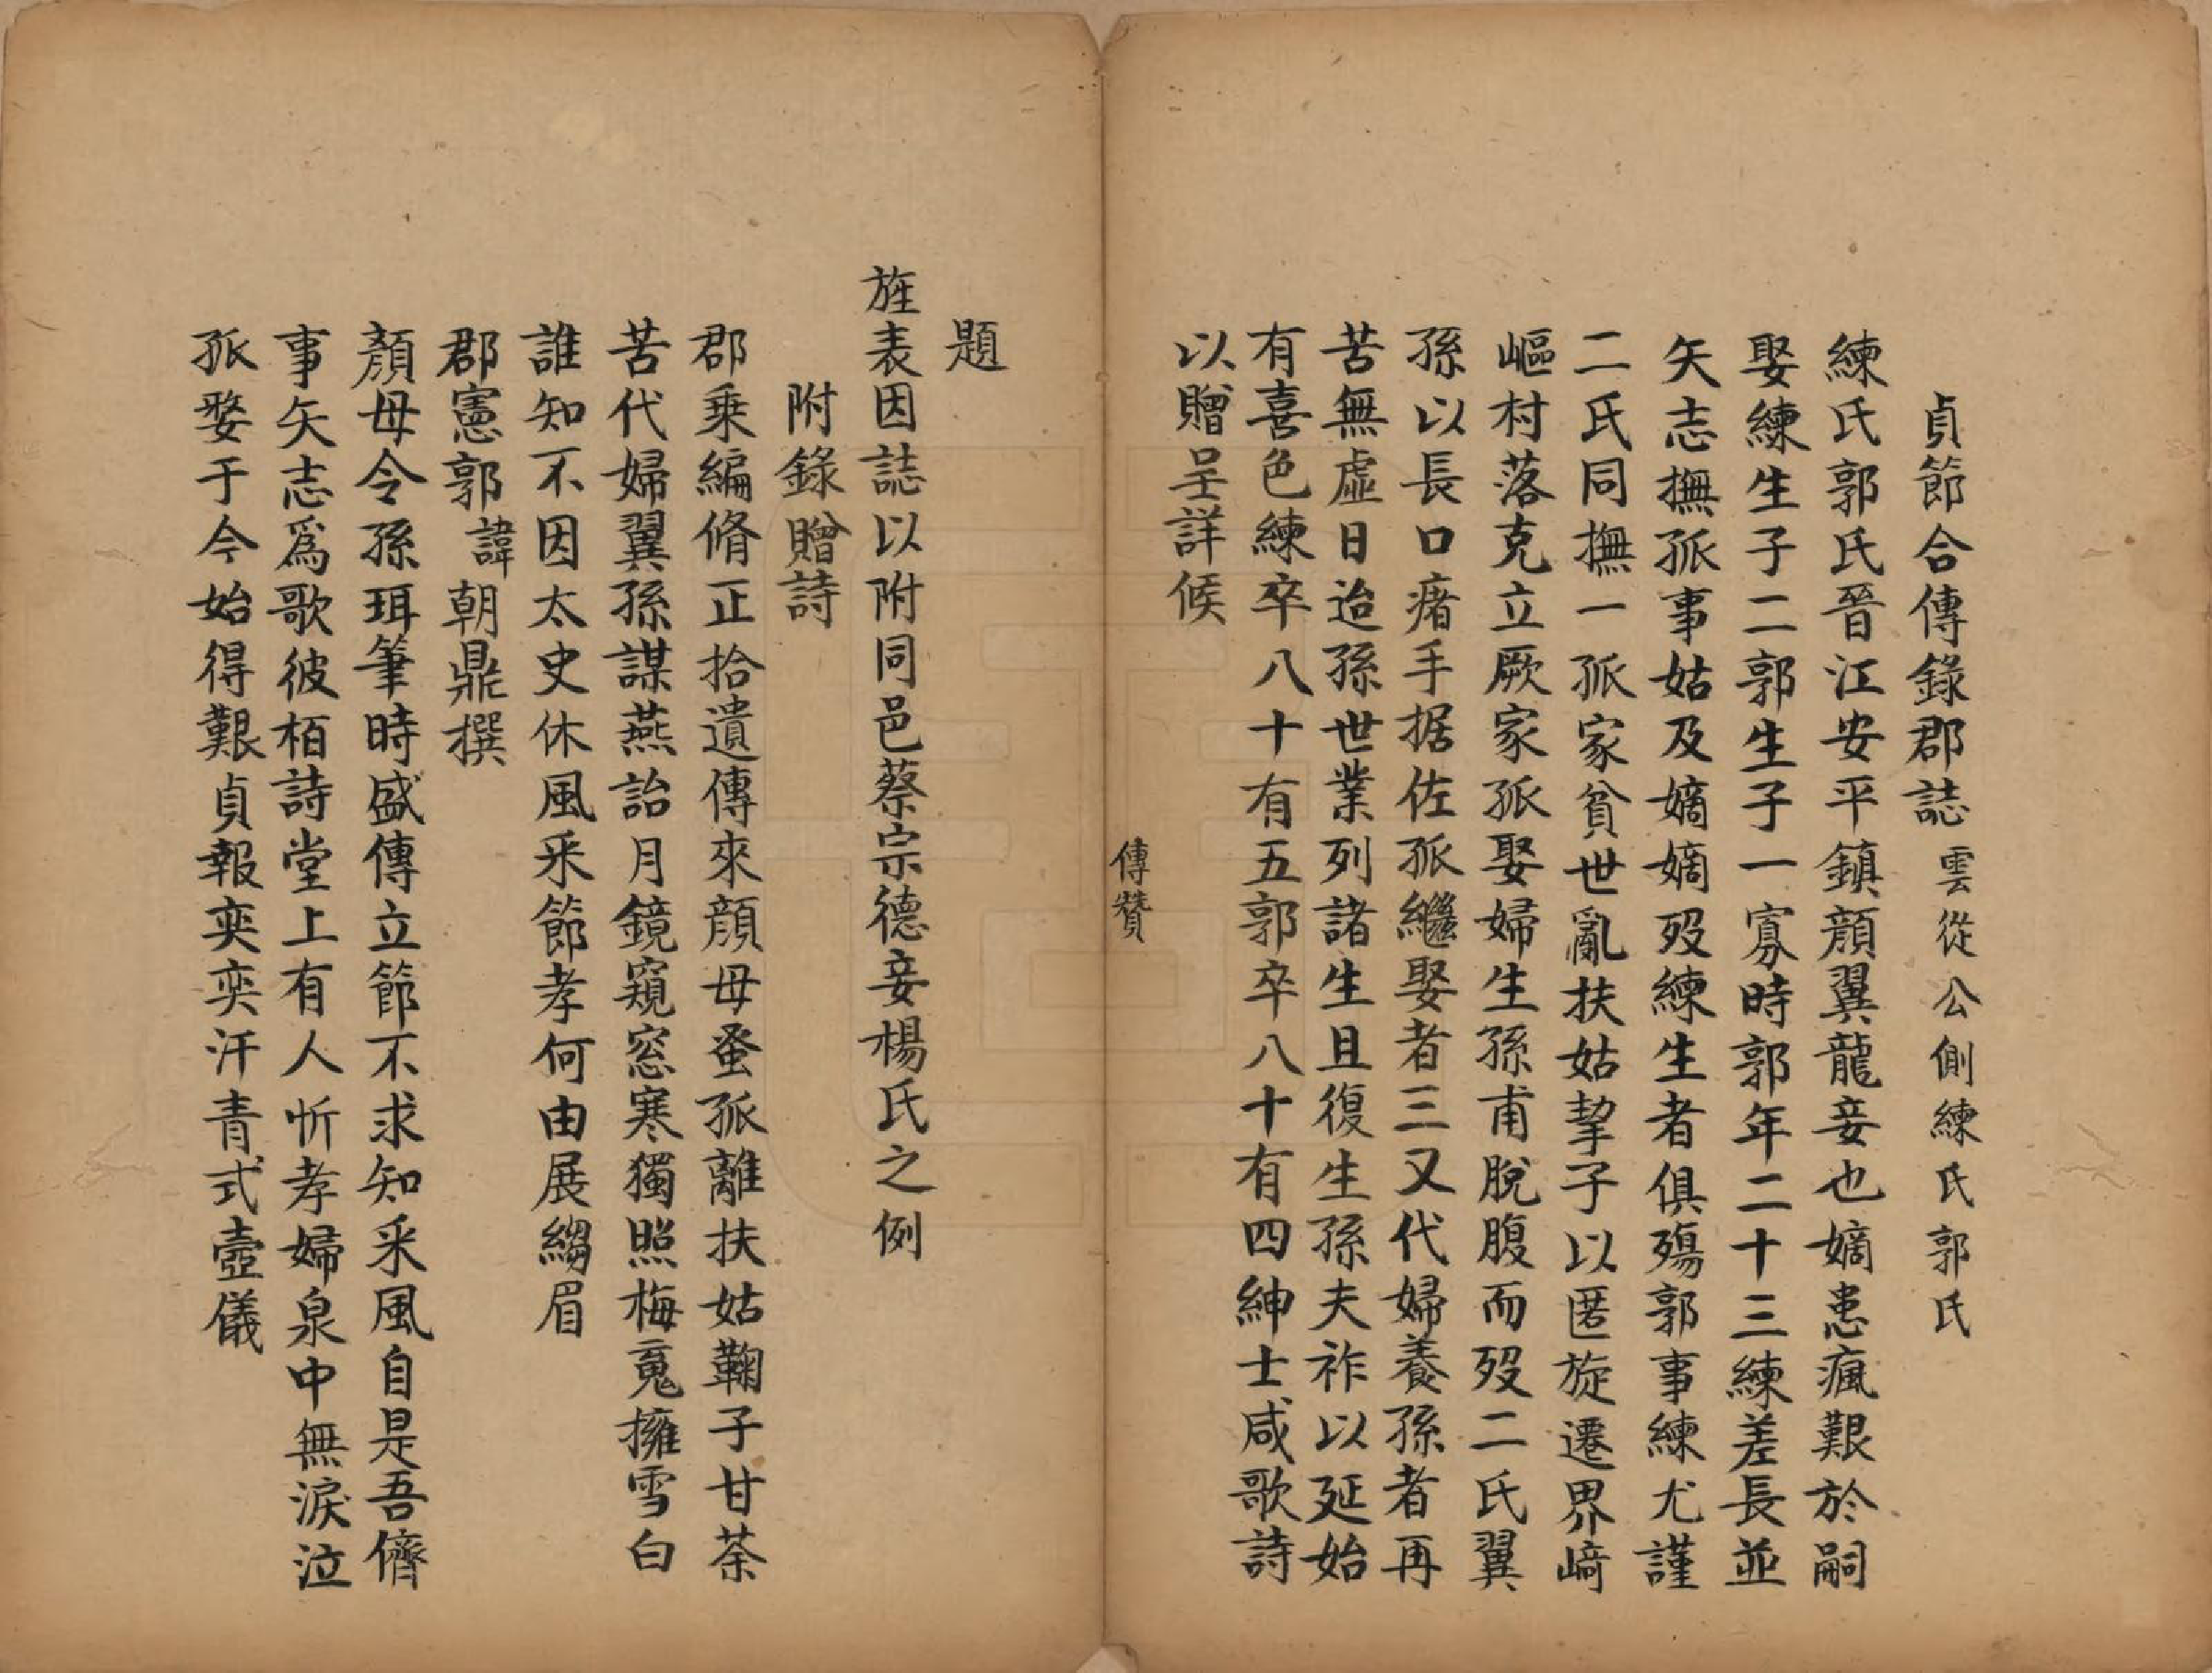 貞節合傳錄郡誌雲從公側練氏郭氏
練氏郭氏晉江安平鎮顏翼龍妾也嫡患瘋艱於嗣
娶練生子二郭生子一寡時郭年二十三練差長並
矢志撫孤事姑及嫡嫡歿練生者俱殤郭事練尤謹
二氏同撫一孤家貧世亂扶姑挈子以匿旋遷界崎
嶇村落克立厥家孤娶婦生孫甫脫腹而歿二氏翼
孫以長口瘏手据佐孤繼娶者三又代婦養孫者再
苦無虛日迨孫世業列諸生且復生孫夫祚以延始
有喜色練卒八十有五郭卒八十有四紳士咸歌詩
以贈呈詳候
傳贊
題
旌表因誌以附同邑蔡宗德妾楊氏之例
附錄贈詩
郡乘編脩正拾遺傳來顏母蚤孤離扶姑鞠子甘茶
苦代婦翼孫謀燕詒月鏡窺窓寒獨照梅䰟擁雪白
誰知不因太史休風采節孝何由展縐眉
郡憲郭諱朝鼎撰
顏母令孫珥筆時盛傳立節不求知采風自是吾儕
事矢志爲歌彼栢詩堂上有人忻孝婦泉中無淚泣
孤嫠于今始得艱貞報奕奕汗青式壼儀